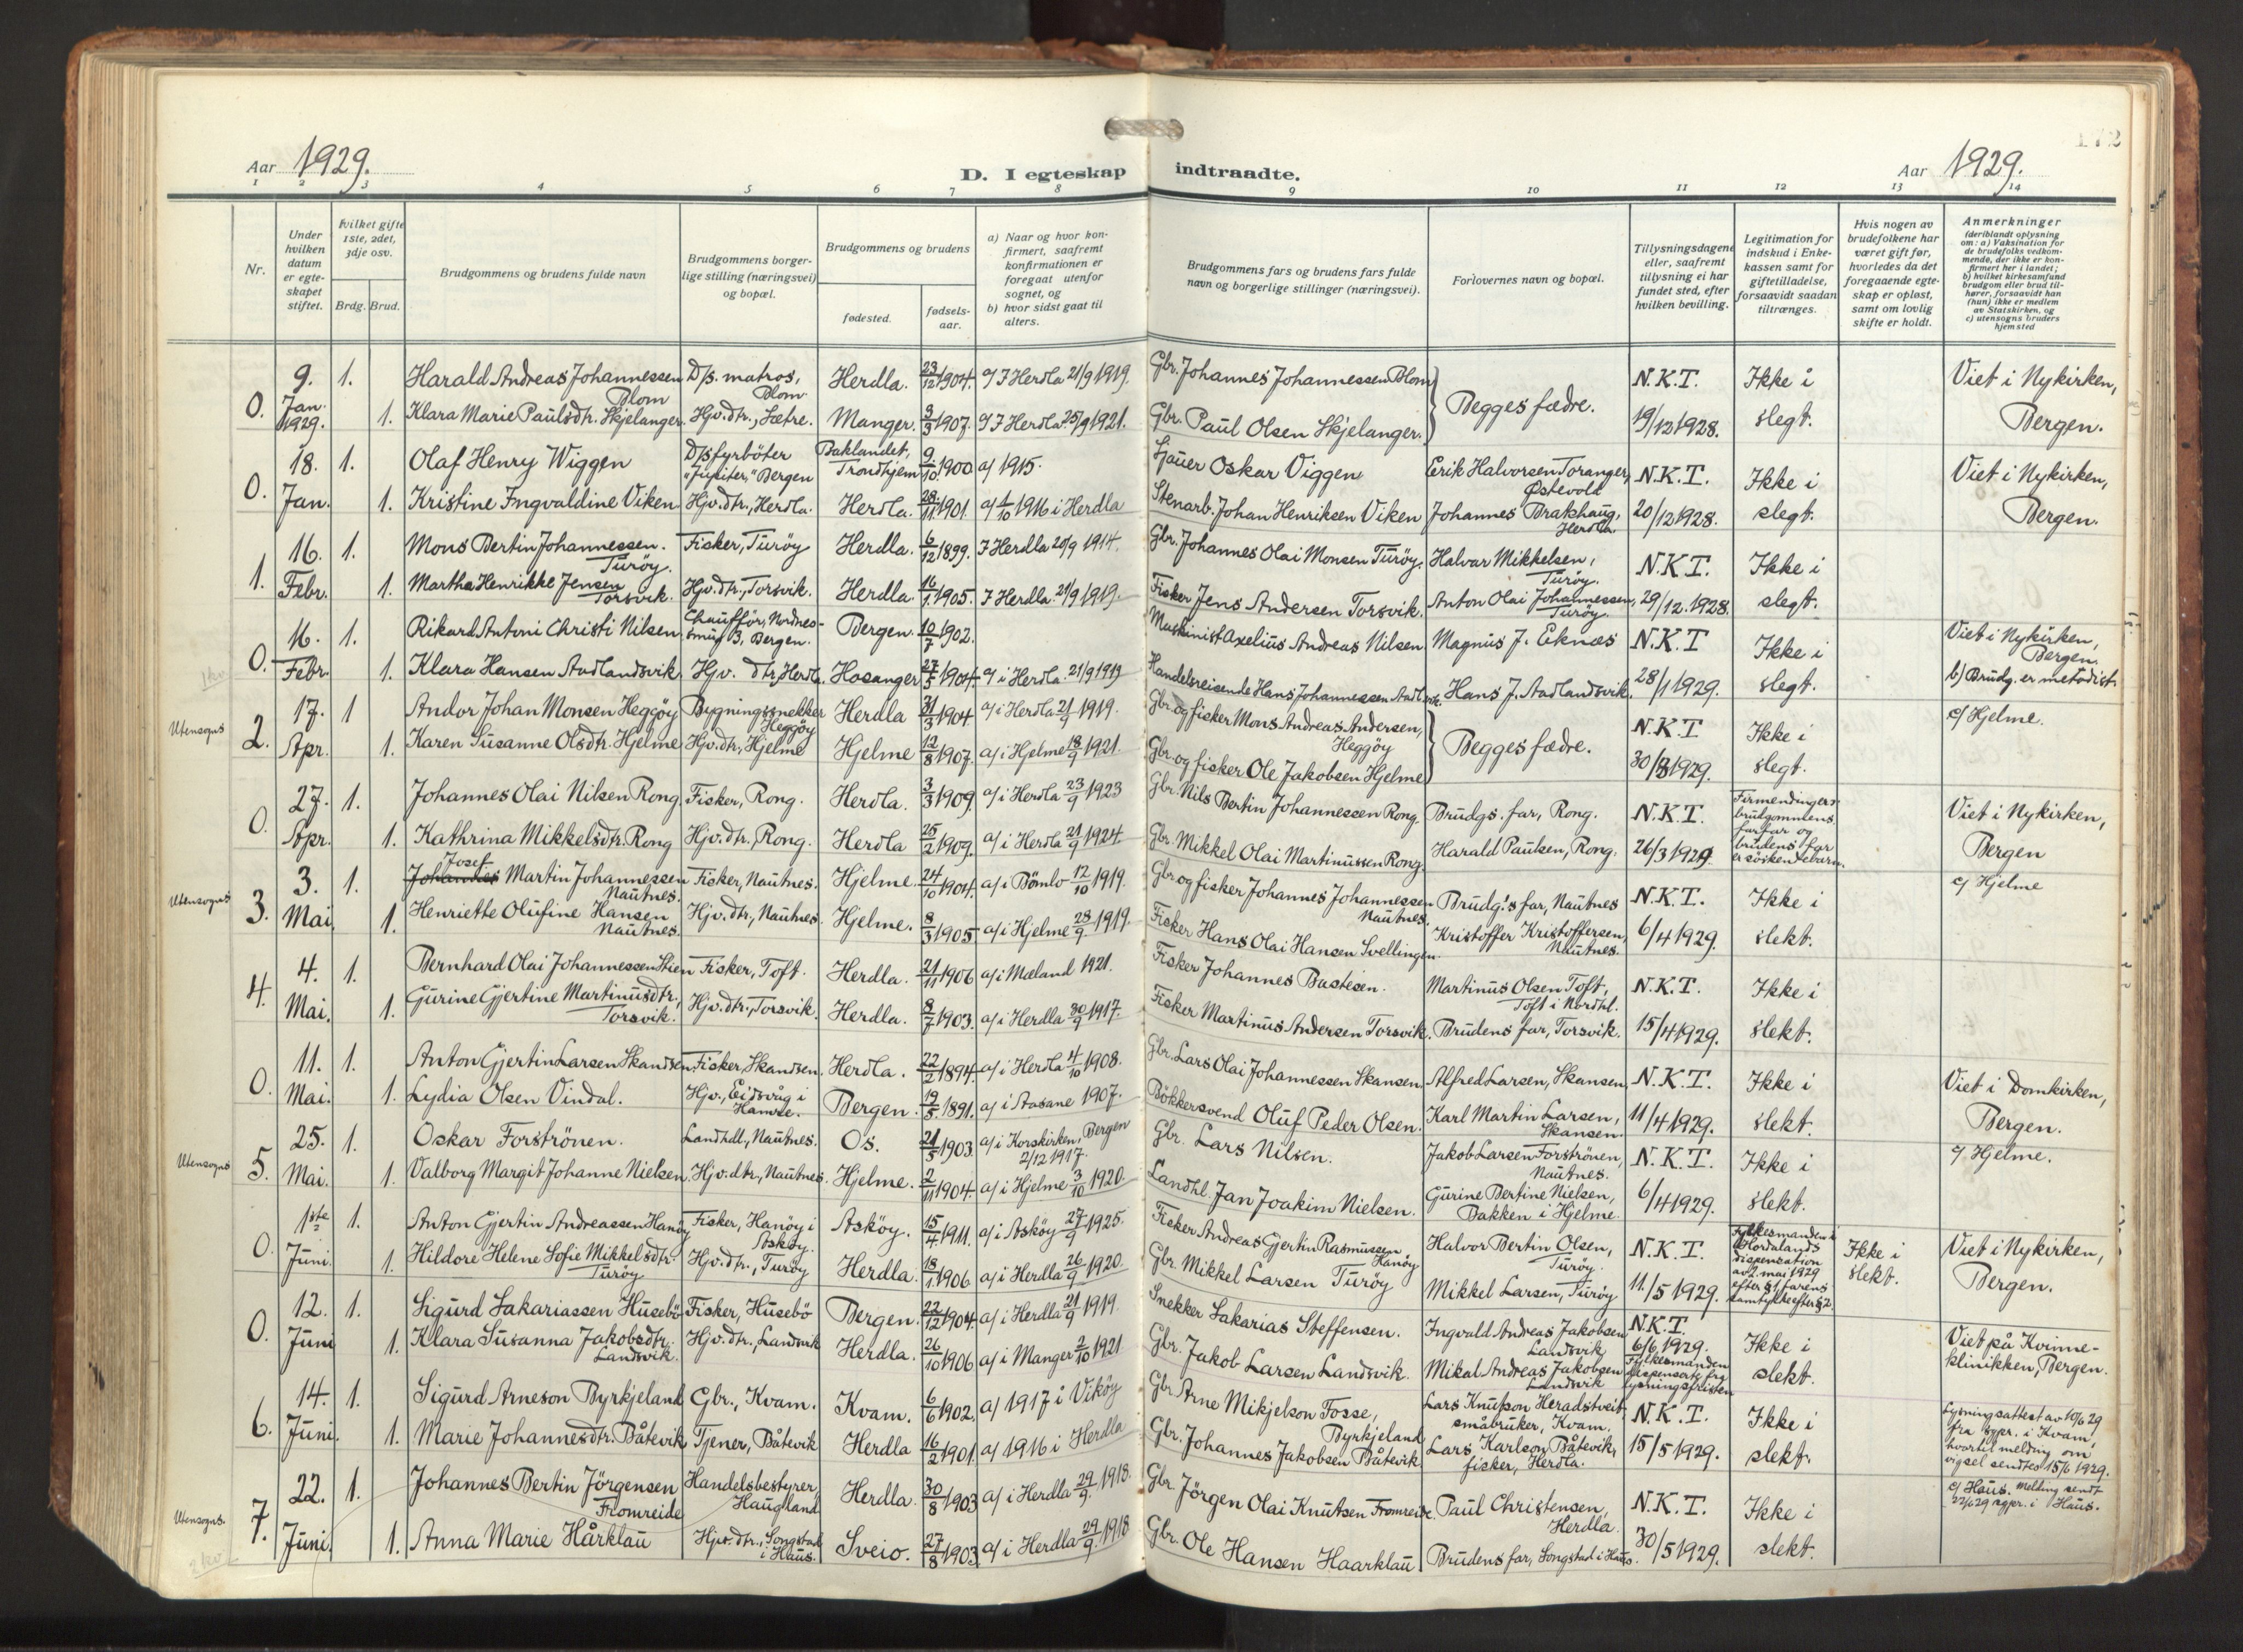 172
Aar 1929.
D. I egteskap indtraadte.
Aar 1929.
1 2 3 4 5 6 7 8 9 10 11 12 13 14
Nr.
Under hvilken datum er egteskapet stiftet.
Hvilket gifte 1ste, 2det, 3dje osv.
Brdg. Brud.
Brudgommens og brudens fulde navn
Brudgommens borgerlige stilling (næringsvei) og bopæl.
Brudgommens og brudens
fødested.
fødselsaar.
a) Naar og hvor konfirmert, saafremt konfirmationen er foregaat utenfor sognet, og
b) hvor sidst gaat til alters.
Brudgommens fars og brudens fars fulde navn og borgerlige stillinger (næringsvei).
Forlovernes navn og bopæl.
Tillysningsdagene eller, saafremt tillysning ei har fundet sted, efter hvilken bevilling.
Legitimation for indskud i Enkekassen samt for giftetilladelse, forsaavidt saadan tiltrænges.
Hvis nogen av brudefolkene har været gift før, hvorledes da det foregaaende egteskap er opløst, samt om lovlig skifte er holdt.
Anmerkninger (deriblandt oplysning om: a) Vaksination for de brudefolks vedkommende, der ikke er konfirmert her i landet; b) hvilket kirkesamfund brudgom eller brud tilhører, forsaavidt han (hun) ikke er medlem av Statskirken, og c) utensogns bruders hjemsted
0. 9. Jan. 1929. 1. Harald Andreas Johannessen Blom D/s. matros, Blom. Herdla. 23/12 1904. a/ I Herdla 21/9 1919. Gbr. Johannes Johannessen Blom Begges fædre. N.K.T. 19/12 1928. Ikke i slegt. Viet i Nykirken, Bergen.
1. Klara Marie Paulsdtr. Skjelanger Hjv. dtr., Sætre. Manger. 3/3 1907. a/ I Herdla 25/9 1921. Gbr. Paul Olsen Skjelanger.
0. 18. Jan. 1. Olaf Henry Wiggen D/s fyrböter "Jupiter," Bergen Baklandet, Trondhjem 9/10 1900 a/ 1915. Sjauer Oskar Viggen Erik Halvorsen Toranger, Østevold N.K.T. 20/12 1928. Ikke i slegt. Viet i Nykirken, Bergen.
1. Kristine Ingvaldine Viken Hjv. dtr., Herdla. Herdla. 28/11 1901. a/ 1/10 1916 i Herdla Stenarb. Johan Henriksen Viken Johannes Brakhaug, Herdla.
1. 16. Febr. 1. Mons Bertin Johannessen. Turöy. Fisker, Turöy Herdla. 6/12 1899. I Herdla 20/9 1914. Gbr. Johannes Olai Monsen Turöy. Halvar Mikkelsen, Turöy. N.K.T. 29/12. 1928. Ikke i slegt.
1. Martha Henrikke Jensen Torsvik. Hjv. dtr., Torsvik. Herdla. 16/1 1905. I Herdla. 21/9 1919. Fisker Jens Andersen Torsvik. Anton Olai Johannessen, Turöy.
0. 16. Febr. 1. Rikard Antoni Christi Nilsen Chaufför, Nordnessmug 3, Bergen. Bergen. 10/7 1902. Maskinist Axelius Andreas Nilsen Magnus J. Eknæs N.K.T 28/1 1929. Ikke i slegt. Viet i Nykirken, Bergen. b) Brudg. er metodist.
1. Klara Hansen Aadlandsvik Hjv. dtr, Herdla. Hosanger 27/5 1904. a/ i Herdla. 21/9 1919 Handelsreisende Hans Johannessen Aadl.vik. Hans J. Aadlandsvik.
Utensogns 2. 17. Apr. 1 Andor Johan Monsen Heggöy Bygningssnekker Heggöy Herdla 31/3 1904 a/ i Herdla 21/9 1919. Gbr. og fisker Mons Andreas Andersen, Heggöy Begges fædre. N.K.T 30/3 1929. Ikke i slegt. c/ Hjelme.
1. Karen Susanne Olsdtr. Hjelme Hjv. dtr, Hjelme Hjelme 12/8 1907. a/ i Hjelme 18/9 1921. Gbr. og fisker Ole Jakobsen Hjelme
0. 27. Apr. 1. Johannes Olai Nilsen Rong Fisker, Rong. Herdla. 3/3 1909. a/ i Herdla 23/9 1923 Gbr. Nils Bertin Johannessen Rong. Brudgs. far, Rong. N.K.T. 26/3 1929. Firmendinger: brudgommens farfar og brudens far er söskendebarn. Viet i Nykirken, Bergen
1. Kathrina Mikkelsdtr. Rong Hjv. dtr, Rong. Herdla 25/2 1909. a/ i Herdla 21/9 1924. Gbr. Mikkel Olai Martinussen Rong. Harald Paulsen, Rong.
Utensogns 3. 3. Mai 1. Johannes Josef Martin Johannessen Nautnes. Fisker, Nautnes. Hjelme. 24/10 1904. a/ i Bömlo 12/10 1919. Gbr. og fisker Johannes Johannessen Nautnes. Brudg.'s far, Nautnes N.K.T. 6/4 1929. Ikke i slekt. c/ Hjelme
1. Henriette Olufine Hansen Nautnes. Hjv. dtr., Nautnes. Hjelme. 8/3 1905 a/ i Hjelme 28/9 1919. Fisker Hans Olai Hansen Svellingen. Kristoffer Kristoffersen, Nautnes.
4. 4. Mai. 1. Bernhard Olai Johannessen Stien Fisker, Toft. Herdla. 21/11 1906 a/ i Mæland 1921. Fisker Johannes Bastesen. Martinus Olsen Toft, Toft i Nordhl. N.K.T. 15/4 1929. Ikke i slekt.
1. Gurine Gjertine Martinusdtr., Torsvik. Hjv. dtr., Torsvik. Herdla. 8/7 1903. a/ i Herdla 30/9 1917. Fisker Martinus Andersen Torsvik. Brudens far, Torsvik.
0. 11. Mai. 1. Anton Gjertin Larsen Skandsen, Fisker, Skandsen. Herdla. 22/2 1894. a/ i Herdla 4/10 1908. Gbr. Lars Olai Johannessen Skansen. Alfred Larsen, Skansen, N.K.T. 11/4 1929. Ikke i slekt. Viet i Domkirken, Bergen.
1. Lydia Olsen Vindal. Hjv., Eidsvåg i Hamre. Bergen. 19/5 1891. a/ i Aasane 1907. Bökkersvend Oluf Peder Olsen. Karl Martin Larsen, Skansen.
Utensogns 5. 25. Mai. 1. Oskar Forströnen. Landhdl., Nautnes. Os. 21/5 1903. a/ i Korskirken, Bergen 2/12 1917. Gbr. Lars Nilsen. Jakob Larsen Forströnen, Nautnes. N.K.T. 6/4 1929. Ikke i slekt. c/ Hjelme.
1. Valborg Margit Johanne Nielsen Hjv. dtr., Nautnes. Hjelme. 2/11 1904. a/ i Hjelme 3/10 1920. Landhl. Jan Joakim Nielsen. Gurine Bertine Nielsen, Bakken i Hjelme.
0. 1ste Juni. 1. Anton Gjertin Andreassen Hanöy Fisker, Hanöy i Asköy. Asköy. 15/4 1911. a/ i Asköy 27/9 1925. Fisker Andreas Gjertin Rasmussen, Hanöy Halvor Bertin Olsen, Turöy. N.K.T. 11/5 1929. Fylkesmanden i Hordalands dispensation av 2. mai 1929 efter § 1 farens samtykke efter § 2. Ikke i slekt. Viet i Nykirken, Bergen.
1. Hildore Helene Sofie Mikkelsdtr. Turöy Hjv. dtr., Turöy Herdla. 18/1 1906 a/ i Herdla 26/9 1920. Gbr. Mikkel Larsen Turöy Mikkel Larsen, Turöy
0. 12. Juni 1. Sigurd Sakariassen Husebö Fisker, Husebö Bergen. 22/12 1904. a/ i Herdla 21/9 1919. Snekker Sakarias Steffensen. Ingvald Andreas Jakobsen Landsvik N.K.T. 6/6 1929. Fylkesmanden dispenserte fra lysningsfristen Ikke i slekt. Viet på Kvinneklinikken, Bergen.
1. Klara Susanna Jakobsdtr. Landsvik. Hjv. dtr., Landsvik Herdla. 26/10 1906 a/ i Manger 2/10 1921 Gbr. Jakob Larsen Landsvik. Mikal Andreas Jakobsen Landsvik
6. 14. Juni. 1. Sigurd Arneson Byrkjeland Gbr., Kvam. Kvam. 6/6 1902. a/ 1917 i Viköy Gbr. Arne Mikjelson Fosse, Byrkjeland Lars Knutson Heradstveit småbruker, Kvam. N.K.T. 15/5 1929. Ikke i slekt. Lysningsattest av 10/6 29 fra sgpr. i Kvam, hvortil melding om vigsel sendtes 15/6 1929.
1. Marie Johannesdtr. Båtevik Tjener, Båtevik Herdla 16/2 1901. a/ 1916 i Herdla Gbr. Johannes Jakobsen Båtevik Lars Karlson Båtevik, fisker, Herdla.
Utensogns. 7. 22. Juni. 1. Johannes Bertin Jörgensen Fromreide Handelsbestyrer, Haugland Herdla. 30/8 1903 a/ i Herdla 29/9 1918. Gbr. Jörgen Olai Knutsen Fromreide Paul Christensen, Herdla. N.K.T. 30/5 1929. Ikke i slekt. c/ Haus. Melding sendt 22/6 29 sgpr. i Haus.
1. Anna Marie Hårklau Hjv. dtr., Songstad i Haus. Sveio. 27/8 1903. a/ i Herdla 29/9 1918 Gbr. Ole Hansen Haarklau Brudens far, Songstad i Haus.